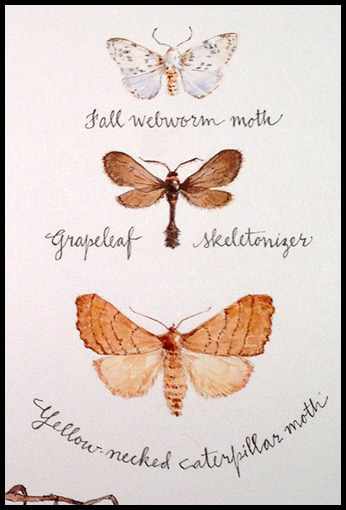 Fall webworm moth
Grapeleaf skeletonizer
Yellow-necked caterpillar moth